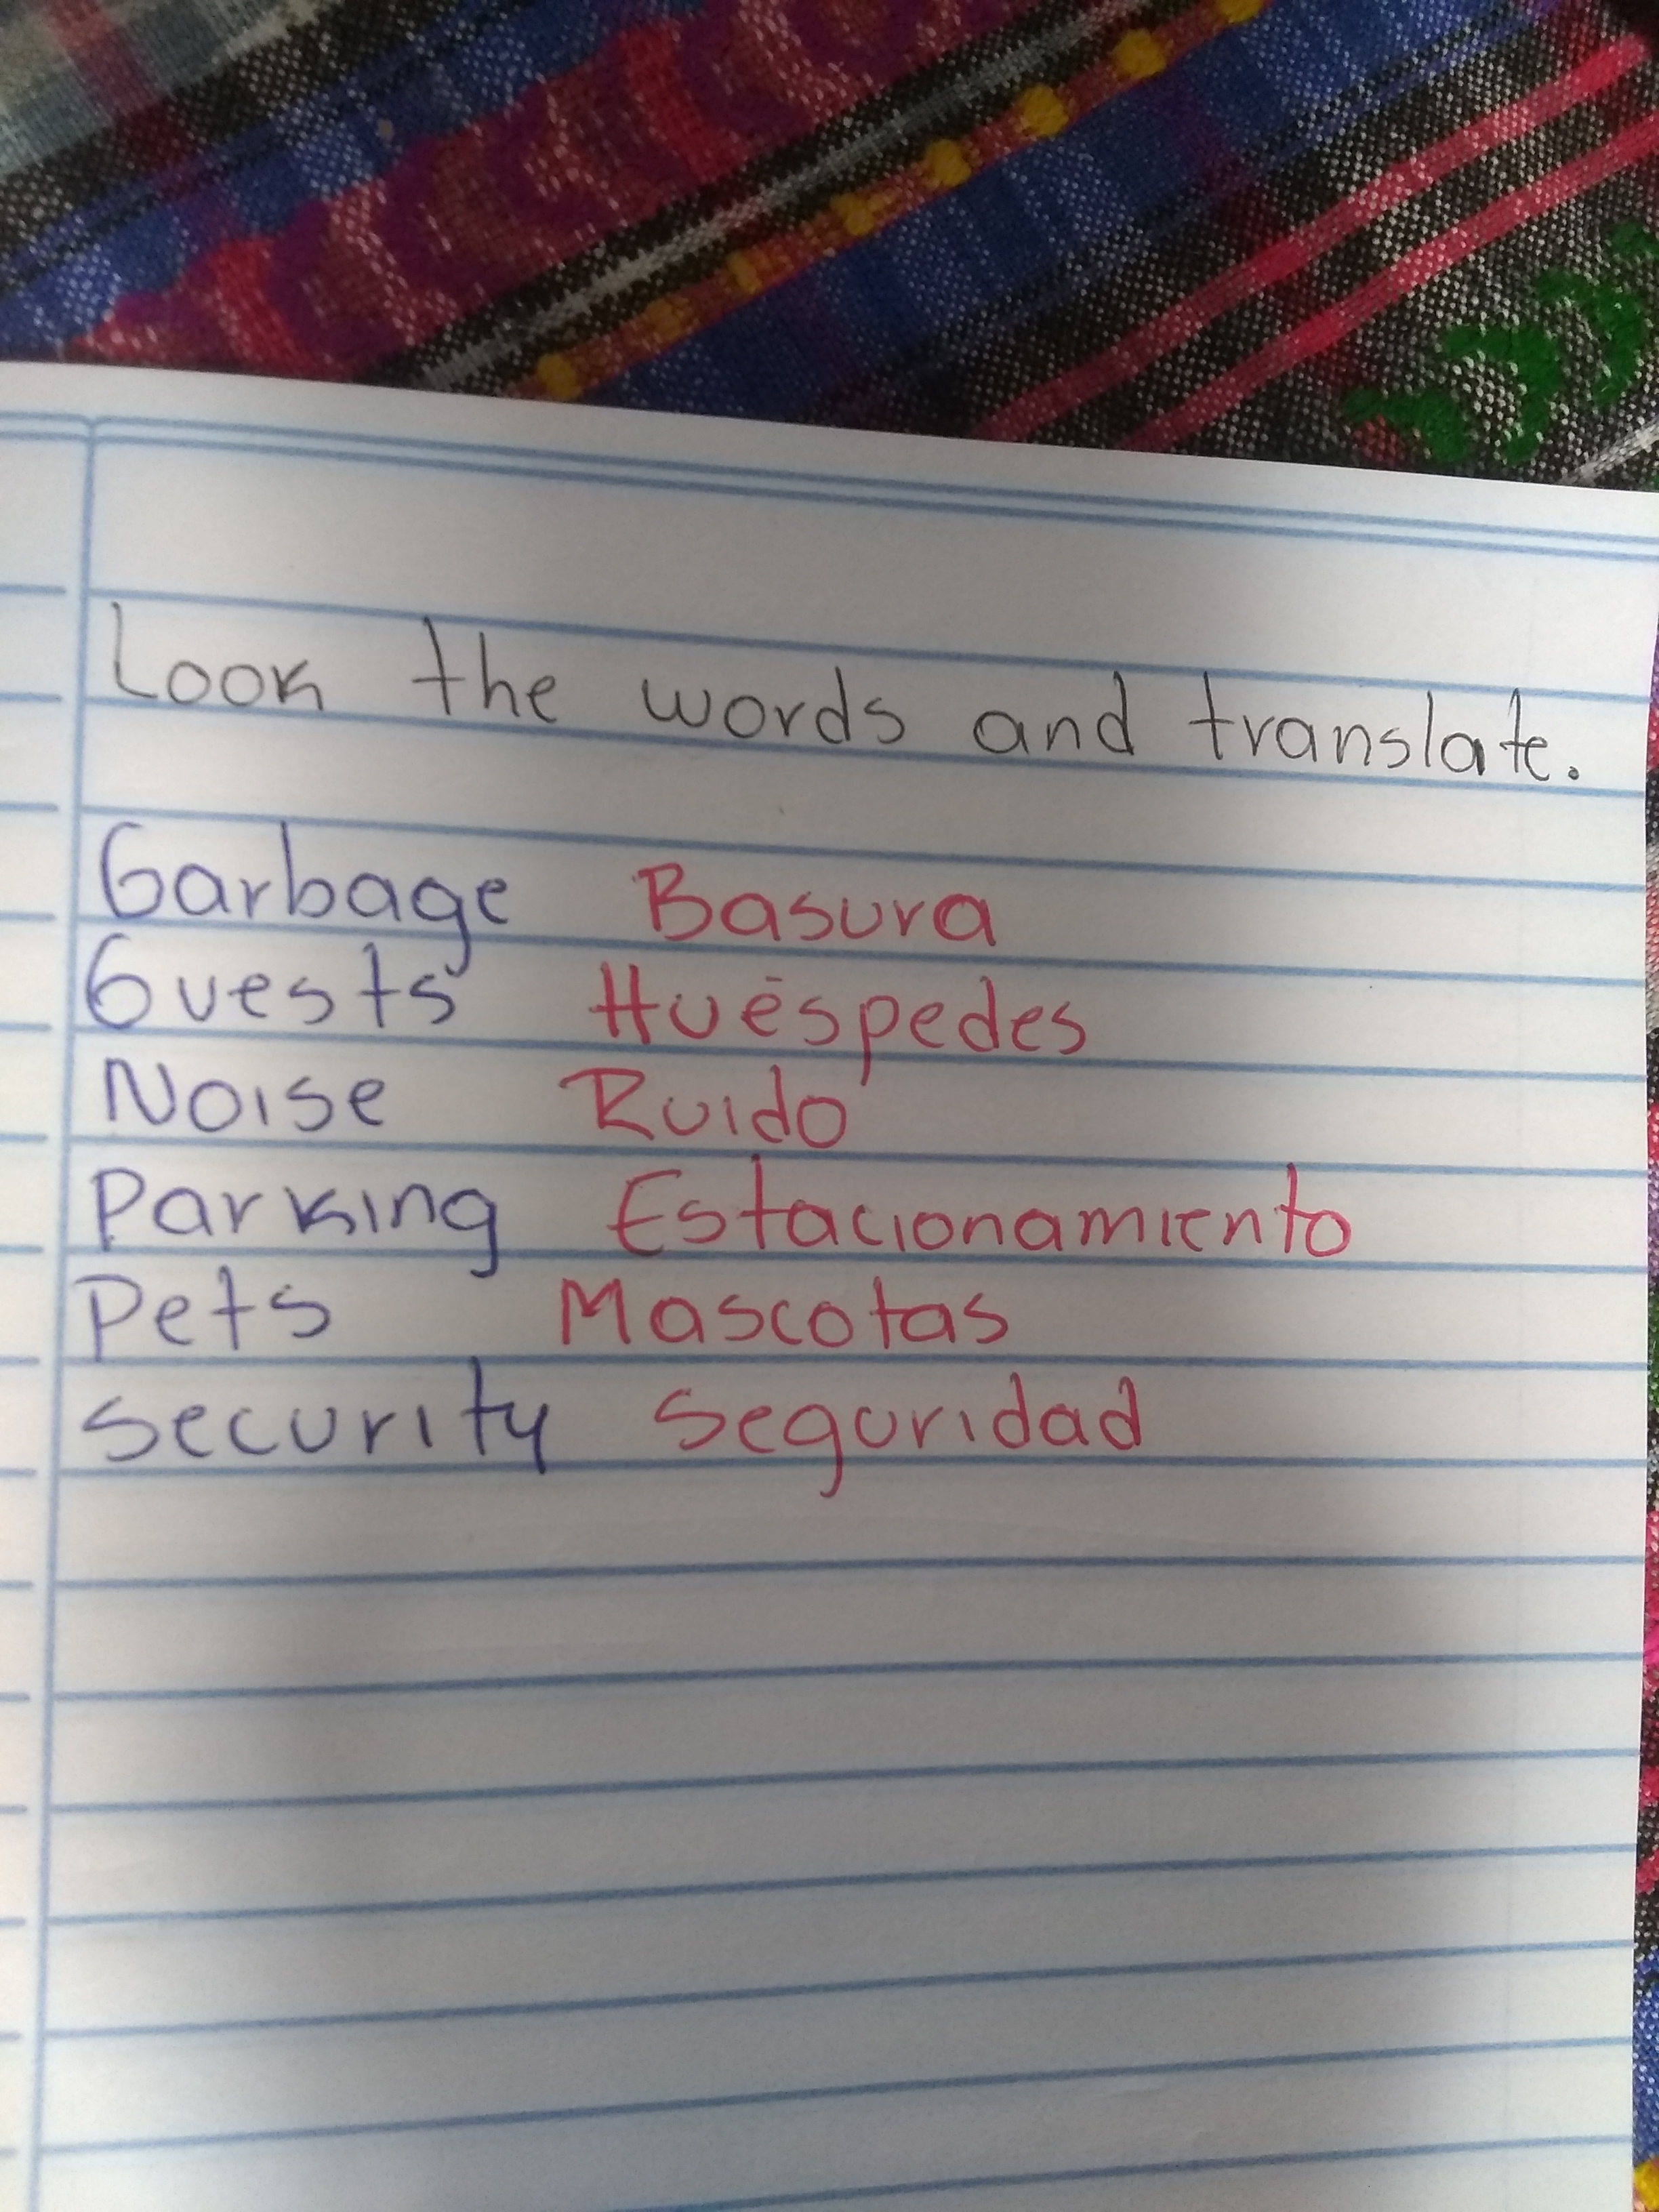 Look the words and translate.
Garbage Basura
Guests Huéspedes
Noise Ruido
Parking Estacionamiento
Pets Mascotas
Security Seguridad